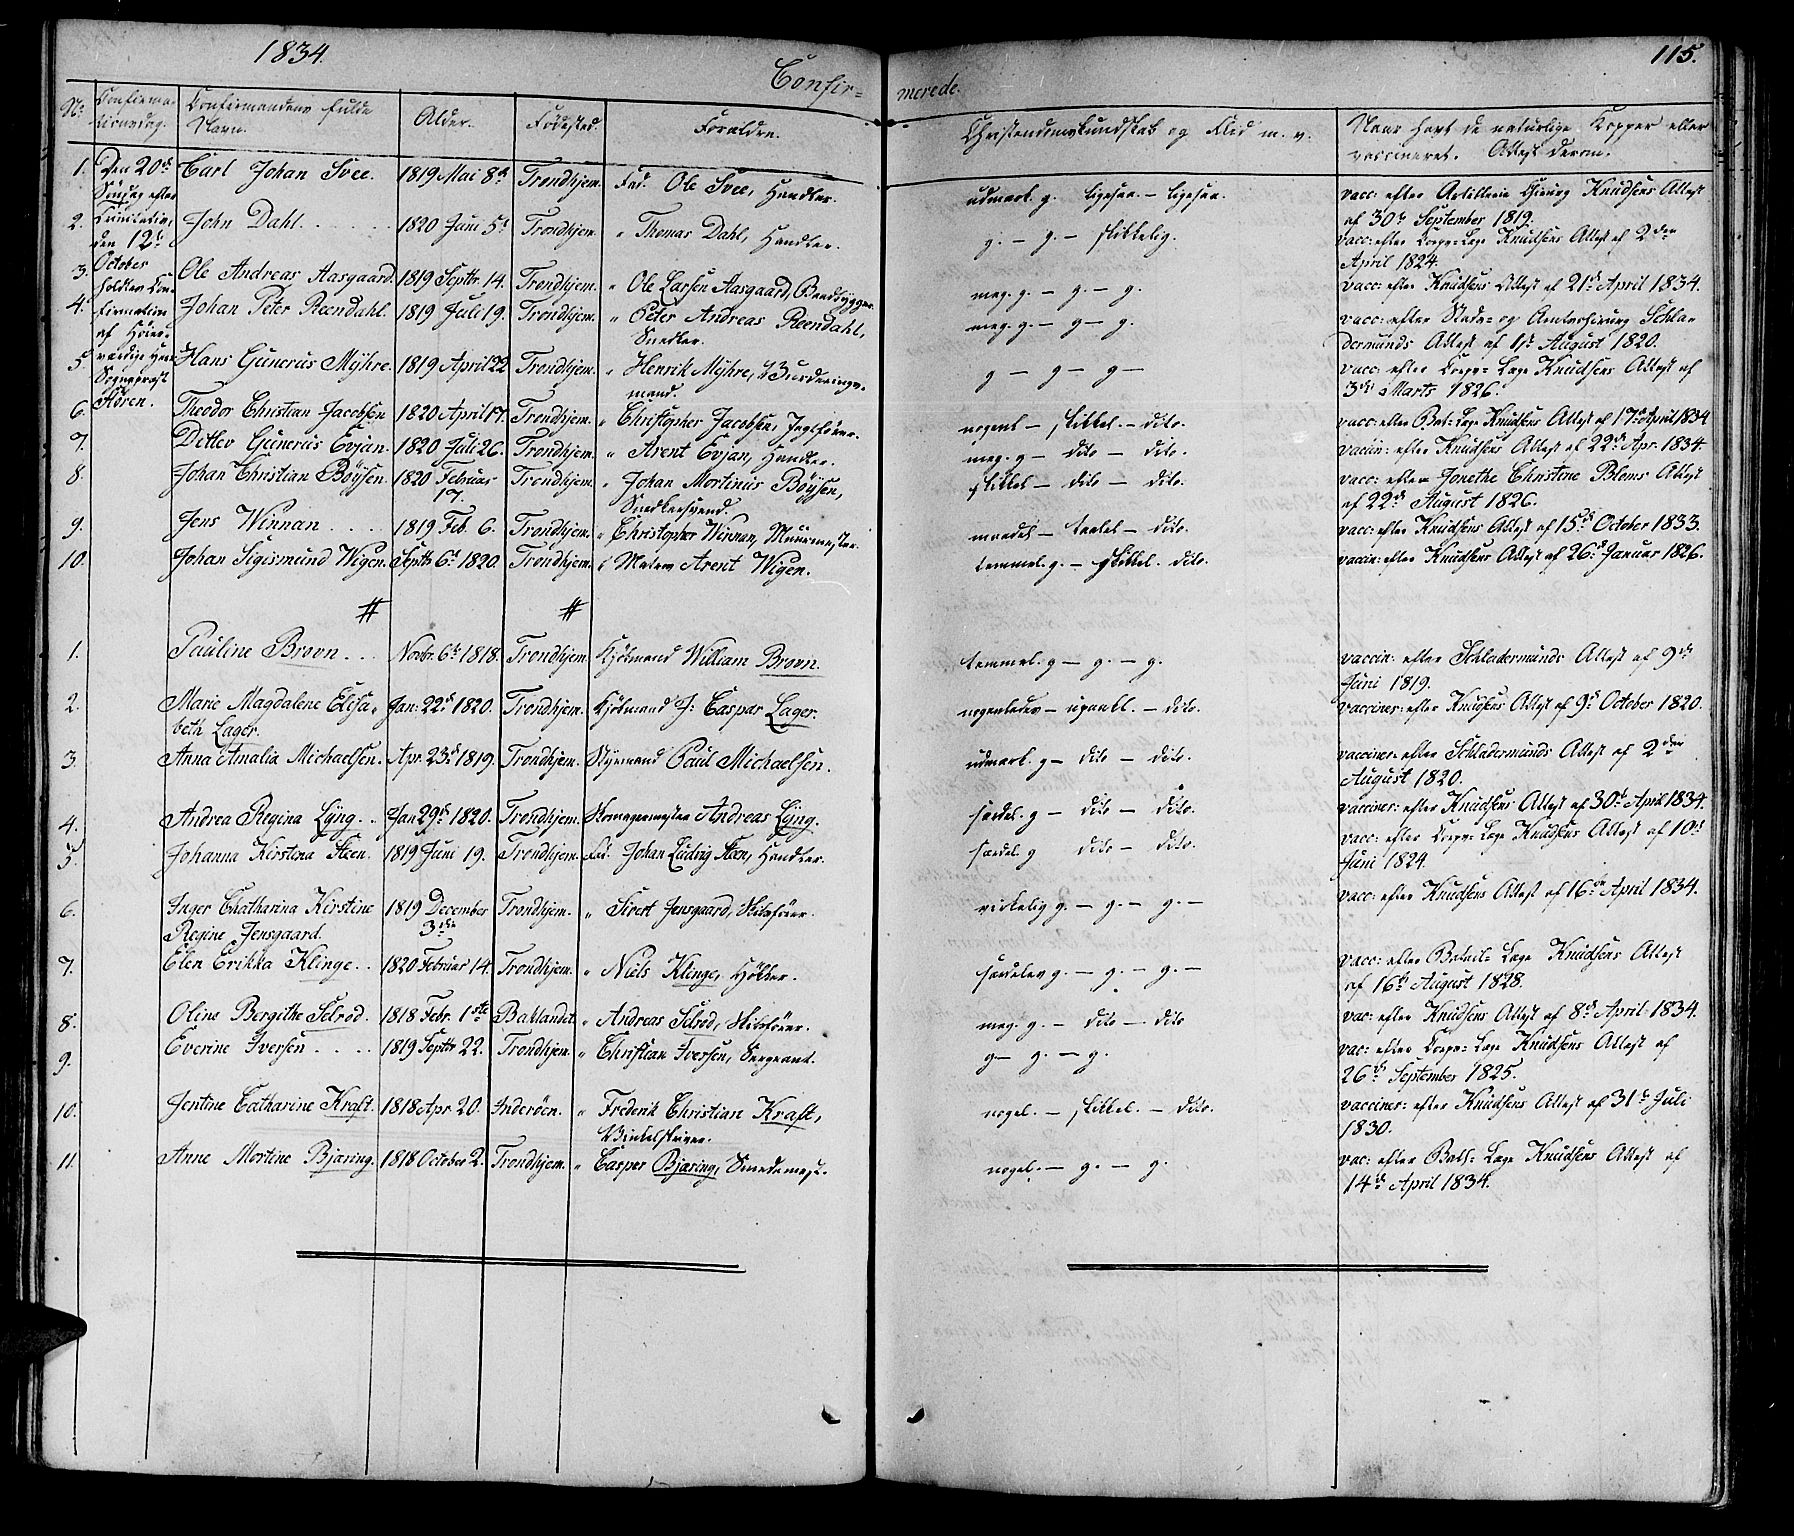 1834.
115.
Confir=
merede.
No
Confirma-
tionsdag.
Confirmandens fulde
Navn.
Alder.
Fødested.
Forældre.
Christendomskundskab og Flid m. v.
Naar havt de naturlige Kopper eller
vaccineret. Attest derom.
Den 20de
Søndag efter
Trinitatis,
den 12te
October
holdtes Con-
firmation
af Høiær-
værdige Herr
Sognepræst
Steren.
1. Carl Johan Svee. 1819 Mai 8de Trondhjem. Fad. Ole Svee, Handler. udmærk. g. ligesaa. – ligesaa. vacc: efter Artillerie Chirurg Knudsens Attest
af 30te September 1819.
2. John Dahl. 1820 Juni 5te Trondhjem. " Thomas Dahl, Handler. g. – g. – skikkelig. vacc: efter Corps-Læge Knudsens Attest af 2den
April 1824.
3. Ole Andreas Aasgaard. 1819 Septbr. 14. Trondhjem. " Ole Larsen Aasgaard, Baadbygger. meg. g. – g. – g. vacc: efter Knudsens Attest af 21de April 1834.
4. Johan Peter Reendahl. 1819 Juli 19. Trondhjem. " Peter Andreas Reendahl,
Snedker. meg. g. – g – g. vacc: efter Stads- og Amtschirurg Schla-
dermunds Attest af 1ste August 1820.
5. Hans Gunerus Myhre. 1819 April 22 Trondhjem. " Henrik Myhre, Vurderings-
mand. g – g – g – vacc: efter Corps-Læge Knudsens Attest af
3die Marts 1826.
6. Theodor Christian Jacobsen 1820 April 17. Trondhjem. " Christopher Jacobsen, Jagtfører. nogenl – skikkel. – dito. vacc: efter Bat-Læge Knudsens Attest af 17de April 1834
7. Detlev Gunerus Evjan. 1820 Juli 26. Trondhjem. " Arent Evjan, Handler. meg. g – dito – dito. vaccin: efter Knudsens Attest af 22de Apr. 1834.
8. Johan Christian Böysen. 1820 Februar
17. Trondhjem. " Johan Mortinus Böysen,
Snedkersvend. skikkel – dito – dito. vacc: efter Jonethe Christine Bloms Attest
af 22de August 1826.
9. Jens Winnan 1819 Feb. 6. Trondhjem. " Christopher Winnan, Muurmester. maadel – – dito. vacc: efter Knudsens Attest af 15de October 1833.
10. Johan Sigismund Wigen. Septbr 6te 1820. Trondhjem. " Maler Arent Wigen. temmel. g. – skikkel. dito. vaccin: efter Knudsens Attest af 26de Januar 1826.
# #
1. Pauline Brovn. Novbr. 6te 1818. Trondhjem Kjøbmand William Brovn. temmel. g – g. – g. vaccin: efter Schladermunds Attest af 9de
Juni 1819.
2. Marie Magdalene Elisa-
beth Lager. Jan: 22de 1820. Trondhjem. Kjøbmand J: Caspar Lager. nogenledes – upaakl. – dito. vacciner: efter Knudsens Attest af 9de October 1820.
3 Anna Amalia Michaelsen. Apr. 23de 1819. Trondhjem. Styrmand Paul Michaelsen. udmærk. g – dito – dito. vacciner: efter Schladermunds Attest af 2den
August 1820.
4. Andrea Regina Lyng. Jan 29de 1820. Trondhjem. Skomagermester Andreas Lyng. særdel. g – dito – dito. vacciner: efter Knudsens Attest af 30te April 1834.
5. Johanna Kirstina Steen. 1819 Juni 19. Trondhjem. Fad. Johan Ludvig Steen, Handler. særdel. g dito – dito. vacc: efter Corps-Læge Knudsens Attest af 10de
Juni 1824.
6. Inger Chatharina Kirstine
Regine Jensgaard. 1819 December
3die Trondhjem. " Sivert Jensgaard, Skibsfører. virkelig g. – g. – g. – vacc: efter Knudsens Attest af 16de April 1834.
7. Elen Erikka Klinge. 1820 Februar 14. Trondhjem. " Niels Klinge, Høker. særdeles g. – g. – g. – vacc: efter Batail-Læge Knudsens Attest
af 16de August 1828.
8. Oline Bergithe Selrod. 1818 Febr. 1ste Baklandet. " Andreas Selrod, Skibsfører. meg. g. – dito – dito vac: efter Knudsens Attest af 8de April 1834.
9. Everine Iversen 1819 Septbr 22. Trondhjem. " Christian Iversen, Sergeant. g – g. – g. vac: efter Corps-Læge Knudsens Attest af
26de September 1825.
10. Jentine Catharine Kraft. 1818 Apr 20. Inderöen. " Frederik Christian Kraft,
Vinkelskriver. nogel. – skikkel. – dito. vacciner: efter Knudsens Attest af 31te Juli
1830.
11. Anne Mortine Bjæring. 1818 October 2. Trondhjem. " Casper Bjæring, Smedemest. nogel. – g. – g. vac: efter Bats-Læge Knudsens Attest af
14de April 1834.